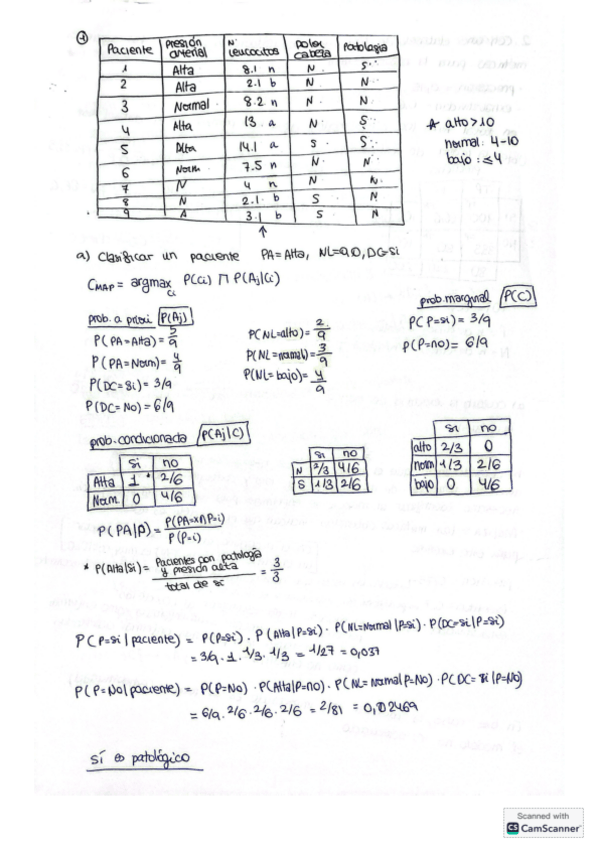 ①
Paciente | Presión arterial | Nº leucocitos | Dolor cabeza | Patología
1 | Alta | 8.1 n | N | S
2 | Alta | 2.1 b | N | N
3 | Normal | 8.2 n | N | N
4 | Alta | 13 a | N | S
5 | Alta | 14.1 a | S | S
6 | Norm | 7.5 n | N | N
7 | N | 4 n | N | N
8 | N | 2.1 b | S | N
9 | A | 3.1 b | S | N
alto >10
normal: 4-10
bajo: ≤4
a) Clasificar un paciente PA=Alta, NL=9,0, DC=Si
C MAP = argmax Ci P(Ci) Π P(Aj|Ci)
prob. a priori P(Aj)
P(PA=Alta) = 5/9
P(PA=Norm) = 4/9
P(DC=Si) = 3/9
P(DC=No) = 6/9
P(NL=alto) = 2/9
P(NL=normal) = 3/9
P(NL=bajo) = 4/9
prob. marginal P(C)
P(P=si) = 3/9
P(P=no) = 6/9
prob. condicionada P(Aj|C)
si | no
Alta | 1* | 2/6
Norm | 0 | 4/6
si | no
N | 2/3 | 4/6
S | 1/3 | 2/6
si | no
alto | 2/3 | 0
norm | 1/3 | 2/6
bajo | 0 | 4/6
P(PA|P) = P(PA=x∩P=i) / P(P=i)
* P(Alta|Si) = Pacientes con patología y presión alta / total de si = 3/3
P(P=Si|paciente) = P(P=Si) · P(Alta|P=Si) · P(NL=Normal|P=Si) · P(DC=Si|P=Si)
= 3/9 · 1 · 1/3 · 1/3 = 1/27 = 0,037
P(P=No|paciente) = P(P=No) · P(Alta|P=no) · P(NL=Normal|P=No) · P(DC=Si|P=No)
= 6/9 · 2/6 · 2/6 · 2/6 = 2/81 = 0,02469
Sí es patológico
Scanned with
CS CamScanner